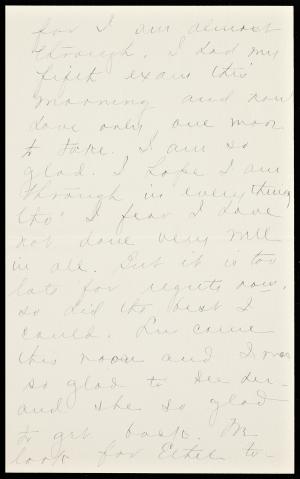 for I am almost
through. I had my
fifth exam this
morning and now
have only one more
to take. I am so
glad. I hope I am
through in everything
tho' I fear I have
not done very well
in all. But it is too
late for regrets now.
so did the best I
could. Lou came
this noon and I was
so glad to see her -
and she so glad
to get back. We
look for Ethel to-